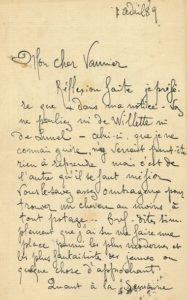 8 avril 89
Mon cher Vanier
Réflexion faite je préfè-
re que dans ma notice vous
ne parliez ni de Willette ni
de Lunel – celui-ci, que je ne
connais guère, ne verrait peut être
rien à reprendre mais c'est de
l'autre qu'il se faut méfier
Vous le savez assez ombrageux pour
trouver un cheveu au moins à
tout potage... Bref dites sim-
plement que j'ai su me faire ma
place parmi les plus modernes et
les plus fantaisistes des jeunes ou
quelque chose d'approchant.
Quant à la Semaine